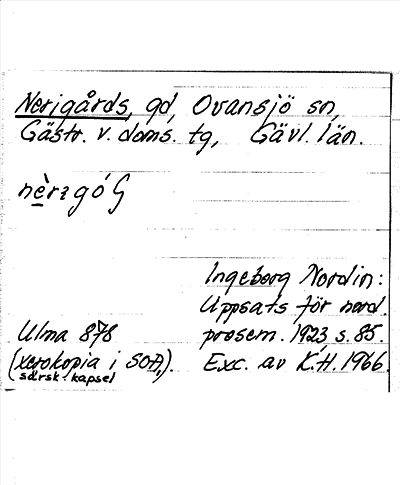 Nerigårds, gd, Ovansjö sn,
Gästr. v. doms. tg, Gävl. län.
nèrɩgó
Ingeborg Nordin:
Uppsats för nord.
prosem. 1923, s. 85.
Exc. av K.H. 1966.
Ulma 878
(xerokopia i SOA,).
särsk. kapsel